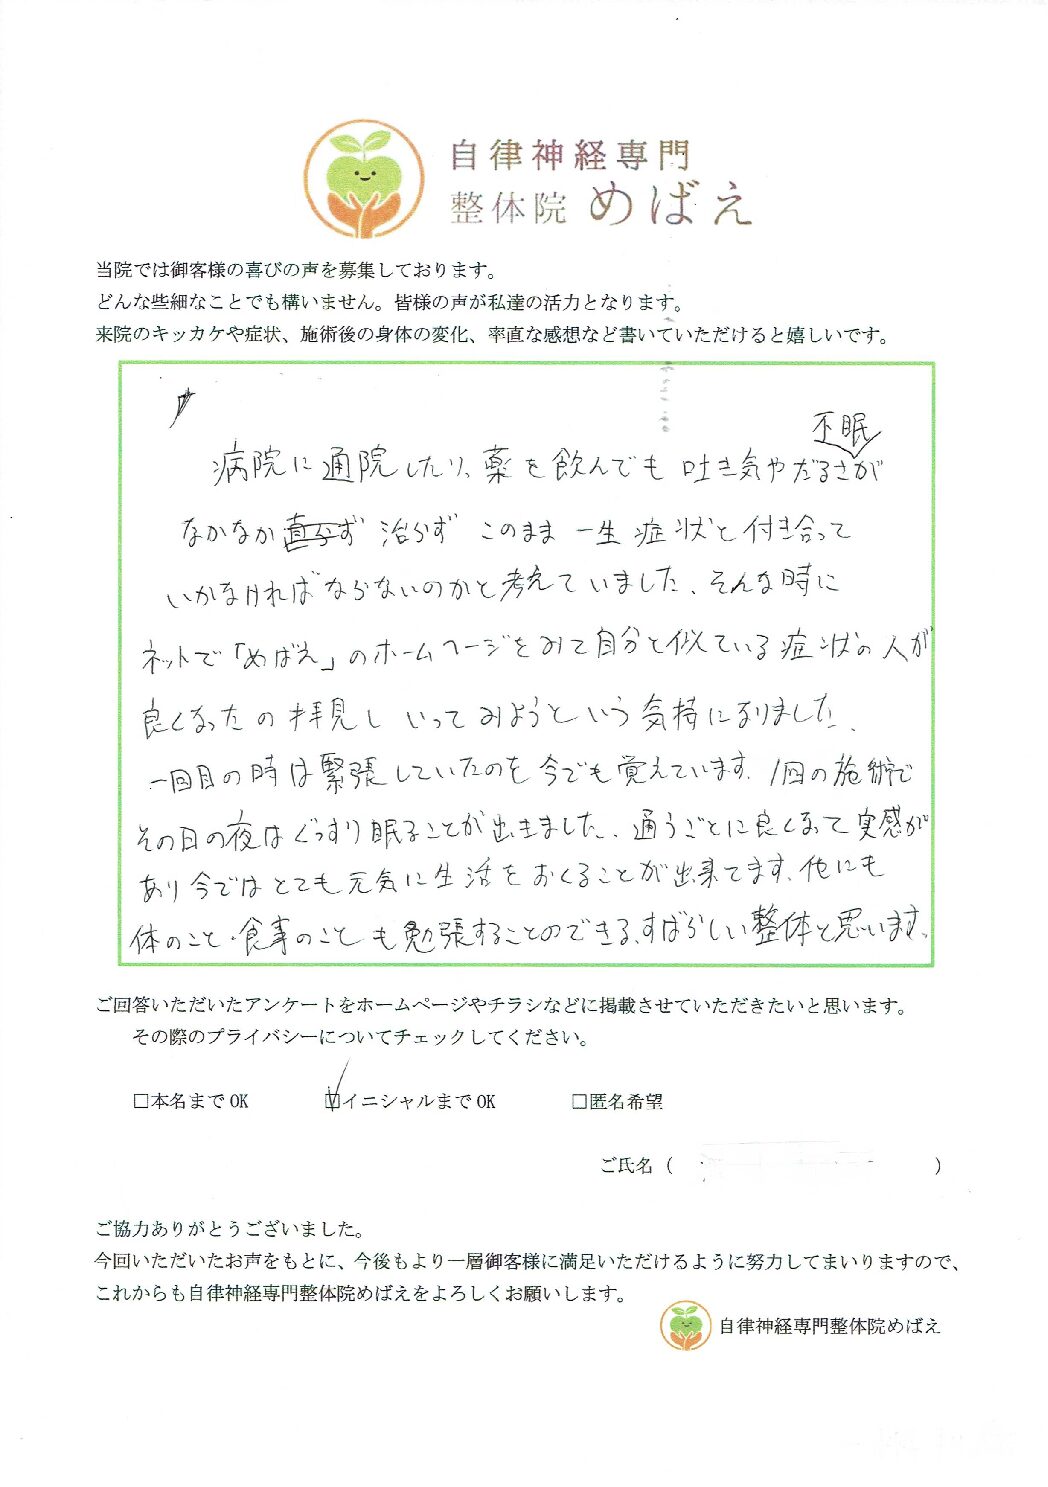 自律神経専門
整体院 めばえ
当院では御客様の喜びの声を募集しております。
どんな些細なことでも構いません。皆様の声が私達の活力となります。
来院のキッカケや症状、施術後の身体の変化、率直な感想など書いていただけると嬉しいです。
不眠
病院に通院したり、薬を飲んでも吐き気やだるさが
なかなか 治らず このまま一生症状と付き合って
いかなければならないのかと考えていました、そんな時に
ネットで「めばえ」のホームページをみて自分と似ている症状の人が
良くなったの拝見し いってみようという気持になりました、
一回目の時は緊張していたのを今でも覚えています、1回の施術で
その日の夜はぐっすり眠ることが出きました、通うごとに良くなって実感が
あり今ではとても元気に生活をおくることが出来てます、他にも
体のこと・食事のことも勉張することのできる、すばらしい整体と思います、
ご回答いただいたアンケートをホームページやチラシなどに掲載させていただきたいと思います。
その際のプライバシーについてチェックしてください。
□本名まで OK ☑イニシャルまで OK □匿名希望
ご氏名（ ）
ご協力ありがとうございました。
今回いただいたお声をもとに、今後もより一層御客様に満足いただけるように努力してまいりますので、
これからも自律神経専門整体院めばえをよろしくお願いします。
自律神経専門整体院めばえ